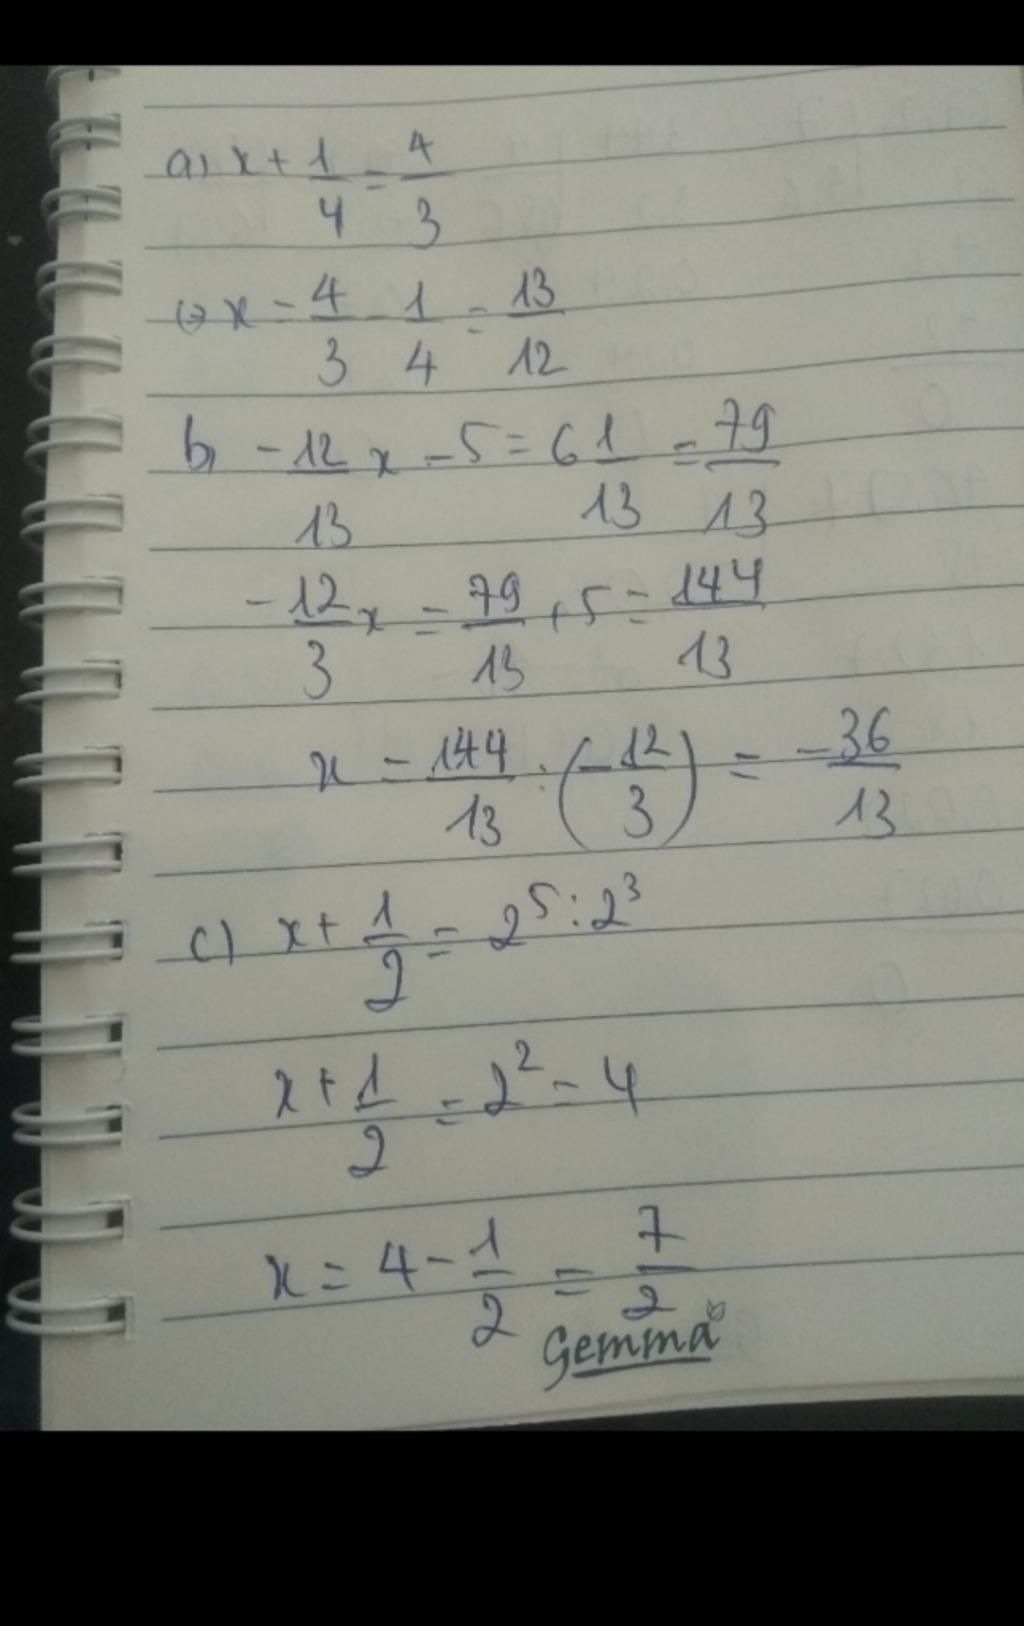 a) x + 1/4 = 4/3
(=) x = 4/3 - 1/4 = 13/12
b) -12/13 x - 5 = 6 1/13 = 79/13
-12/3 x = 79/13 + 5 = 144/13
x = 144/13 : (-12/3) = -36/13
c) x + 1/2 = 2^5 : 2^3
x + 1/2 = 2^2 = 4
x = 4 - 1/2 = 7/2
Gemma